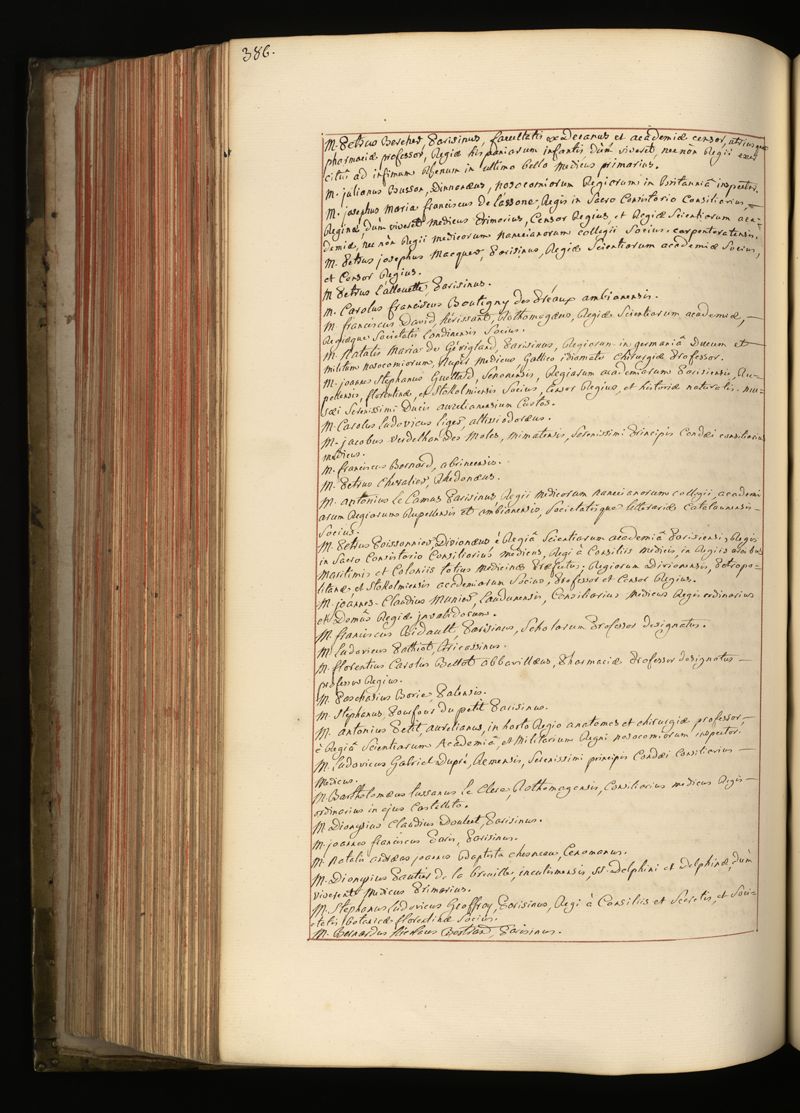 386.
M. Petrus Bercher, Parisinus, facultatis exdecanus et academiæ censor, utriusque
pharmaciæ professor, Regiæ hispaniarum infantis dùm viveret, nec nòn Regii exer
citûs ad infimum Rhenum in ultimo bello medicus primarius.
M. julianus Busson, Dinnonæus, nosocomiorum Regiorum in Britanniâ inspector.
M. josephus Maria franciscus de Lassone, Regis in Sacro Consistorio Consiliarius,
Reginæ, dùm viveret medicus Primarius, Censor Regius, et Regiæ Scientiarum aca=
demiæ, nec nòn Regii medicorum nanceianorum collegii Socius. carpentoratensis.
M. Petrus josephus Macquer, Parisinus, Regiæ Scientiarum academiæ Socius,
et Censor Regius.
M. Petrus Lallouette Parisinus.
M. Carolus franciscus Boutigny des Préaux ambianensis.
M. franciscus David hérissant, Rothomagæus, Regiæ Scientiarum academiæ, —
Regiæque Societatis Londinensis Socius.
M. Natalis Maria de Gévigland, Parisinus, Regiorum in germaniâ Ducum et —
militum nosocomiorum, nuper medicus Gallico idiomate Chirurgiæ Professor.
M. joannes Stephanus Guettard, Senonensis, Regiarum academiarum Parisiensis, Ru=
pellensis, florentinæ, et Stokolmiensis Socius, Censor Regius, et historiæ naturalis mu=
sæi Serenissimi Ducis aurelianensium Custos.
M. Carolus Ludovicus liger, altissiodoræus.
M. jacobus Verdelhan des Moles, mimatensis, Serenissimi Principis Condæi consiliarius
medicus.
M. franciscus Bernard, abrincensis.
M. Petrus Chevalier, Rhedonæus.
M. antonius Le Camus Parisinus Regii medicorum nanceianorum collegii, academi
arum Regiarum Rupellensis et ambianensis, Societatisque litterariæ Catalaunensis —
Socius.
M. Petrus Poissonnier, Divionæus è Regiâ Scientiarum academiâ Parisiensi, Regis
in Sacro Consistorio Consiliarius medicus, Regi à Consiliis medicis, in Regiis oris
Maritimis et Coloniis totius medicinæ Præfectus; Regiarum Divionensis, Petropo=
litanæ et Stokolmiensis academiarum Socius, Professor et Censor Regius.
M. joannes-Claudius Munier, Laudunensis, Consiliarius medicus Regis ordinarius
et Domûs Regiæ invalidorum.
M. franciscus Bidault, Parisinus, Scholarum Professor designatus.
M. Ludovicus Pathiot, Tricassinus.
M. florentius Carolus Bellot abbavillæus, Pharmaciæ Professor designatus —
professor Regius.
M. Paschasius Borie, Palensis.
M. Stephanus Pourfour du petit Parisinus.
M. antonius Petit, aurelianus, in horto Regio anatomes et chirurgiæ professor, —
è Regiâ Scientiarum Academiâ, et Militarium Regni nosocomiorum inspector.
M. Ludovicus Gabriel Dupré, Remensis, Serenissimi principis Condæi Consiliarius —
medicus.
M. Bartholomæus tussanus le Clerc, Rothomagensis, Consiliarius medicus Regis —
ordinarius in ejus Castelleto.
M. Dionysius Claudius Doulcet, Parisinus.
M. joannes franciscus Paris, Parisinus.
M. Natalis andræas joannes Baptista chesneau, Cenomanus.
M. Dionysius Gautier de la breuille, inculismensis, ss. Delphini et Delphinæ, dùm
viverent Medicus Primarius.
M. Stephanus Ludovicus Geoffroy, Parisinus, Regi à Consiliis et Secretis, et Soci=
etatis Botanicæ florentinæ Socius.
M. Bernardus Nicolaus Bertrand, Parisinus.